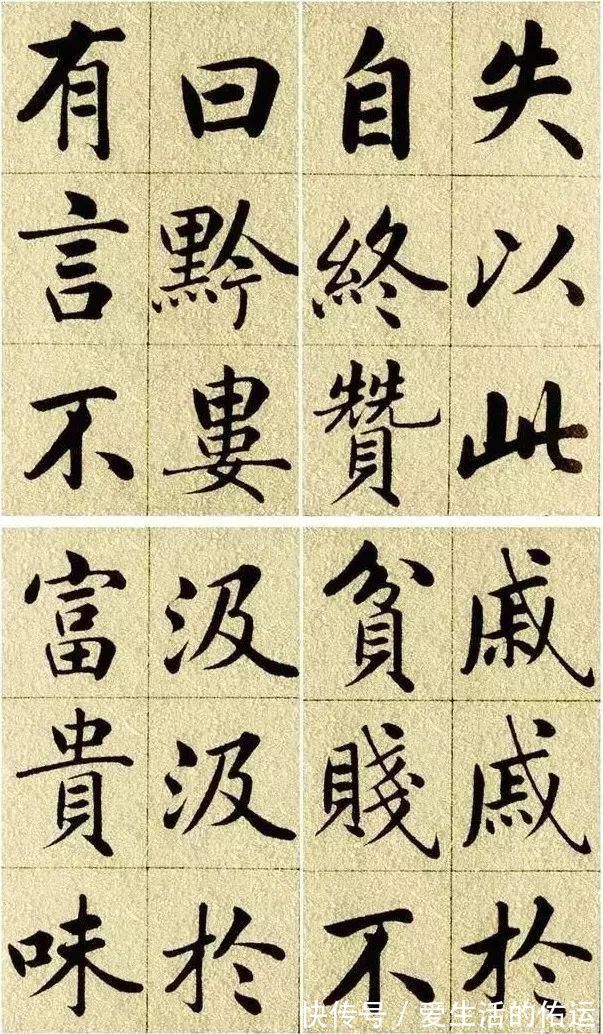 失以此
自終贊
曰黔婁
有言不
戚戚於
貧賤不
汲汲於
富貴味
快传号 / 爱生活的佑运